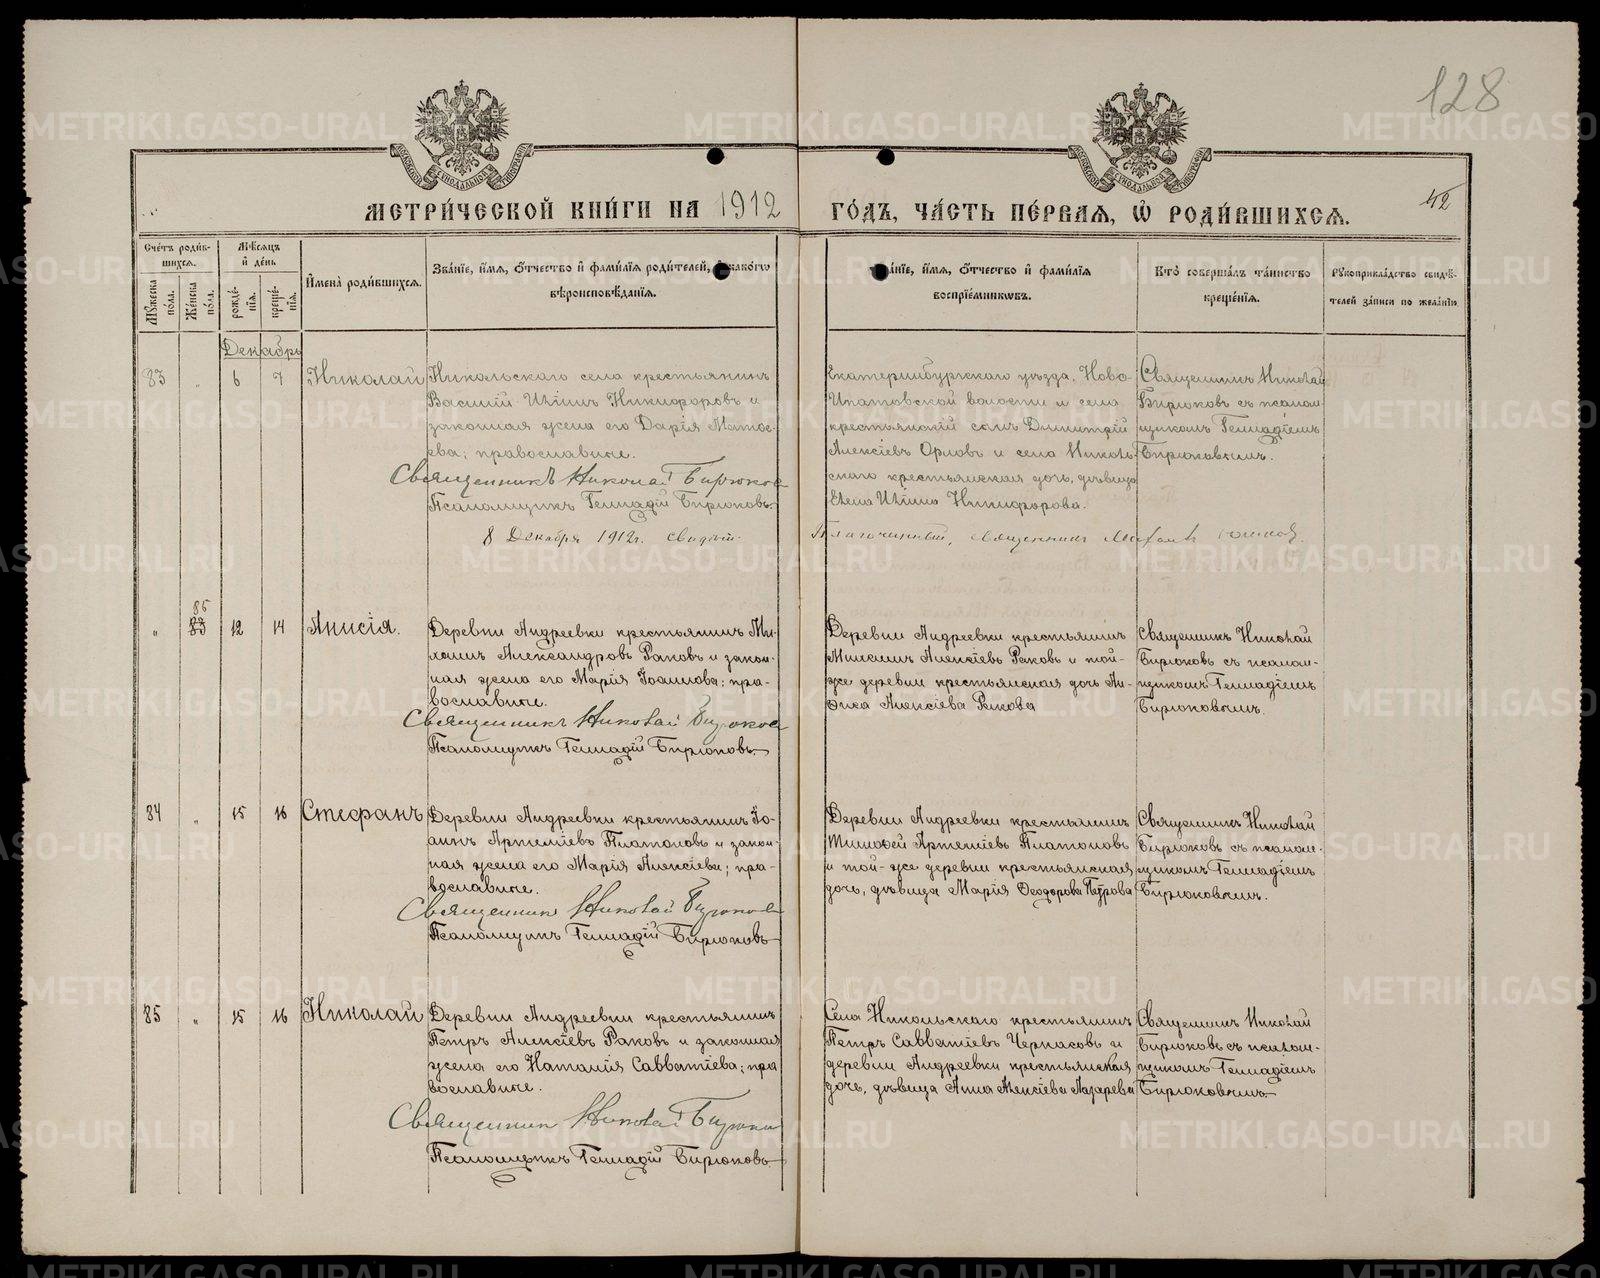 128
42
МЕТРИ́ЧЕСКОЙ КНИ́ГИ НА 1912 ГО́ДЪ, ЧА́СТЬ ПЕ́РВАЯ, Ѡ҆ РОДИ́ВШИХСѦ.
Счéтъ роди́в-
шихсѧ.
Мꙋ́жеска по́ла.
Же́нска по́ла.
Мѣ́сѧцъ и҆ де́нь
рожде́-
нїѧ.
креще́-
нїѧ.
И҆мена̀ роди́вшихсѧ.
Зва́нїе, и҆́мѧ, ѻ҆́тчество и҆ фами́лїѧ роди́телей, и҆ како́гѡ
вѣроисповѣ́данїѧ.
Зва́нїе, и҆́мѧ, ѻ҆́тчество и҆ фами́лїѧ
воспрїе́мникѡвъ.
Кто̀ соверша́лъ та́инство
креще́нїѧ.
Рꙋкоприкла́дство свидѣ́-
телей за́писи по жела́нїю
Декабрь
83 " 6 7 Николай
Никольскаго села крестьянинъ
Василій Ильинъ Никифоровъ и
законная жена его Дарія Матѳе-
ева; православные.
Священникъ Николай Бирюков
Псаломщикъ Геннадій Бирюковъ.
Екатеринбургскаго уѣзда, Ново-
Ипатовской волости и села
крестьянскій сынъ Димитрій
Алексіевъ Орловъ и села Николь-
скаго крестьянская дочь, дѣвица
Елена Ильина Никифорова.
Священникъ Николай
Бирюковъ съ псалом-
щикомъ Геннадіемъ
Бирюковымъ.
8 Декабря 1912 г. свидѣт. Благочинный, священник
" 85 12 14 Анисія.
Деревни Андреевки крестьянинъ Ми-
хаилъ Александровъ Раковъ и закон-
ная жена его Марія Іоаннова; пра-
вославные.
Священникъ Николай Бирюков
Псаломщикъ Геннадій Бирюковъ.
Деревни Андреевки крестьянинъ
Алексіевъ Раковъ и той-
же деревни крестьянская дочь Ан-
Алексіева Ракова
Священникъ Николай
Бирюковъ съ псалом-
щикомъ Геннадіемъ
Бирюковымъ.
84 " 15 16 Стефанъ
Деревни Андреевки крестьянинъ Іо-
аннъ Артеміевъ Платоновъ и закон-
ная жена его Марія Алексіева; пра-
вославные.
Священник Николай Бирюков
Псаломщикъ Геннадій Бирюковъ
Деревни Андреевки крестьянинъ
Тимоѳей Артеміевъ Платоновъ
и той-же деревни крестьянская
дочь, дѣвица Марія Ѳеодорова Петрова
Священникъ Николай
Бирюковъ съ псалом-
щикомъ Геннадіемъ
Бирюковымъ.
85 " 15 16 Николай
Деревни Андреевки крестьянинъ
Петръ Алексіевъ Раковъ и законная
жена его Наталія Савватіева; пра
вославные.
Священник Николай Бирюков
Псаломщикъ Геннадій Бирюковъ
Села Никольскаго крестьянинъ
Петръ Савватіевъ Черкасовъ и
деревни Андреевки крестьянская
дочь, дѣвица Анна Алексіева Лазарева
Священникъ Николай
Бирюковъ съ псалом-
щикомъ Геннадіемъ
Бирюковымъ.
METRIKI.GASO-URAL.RU